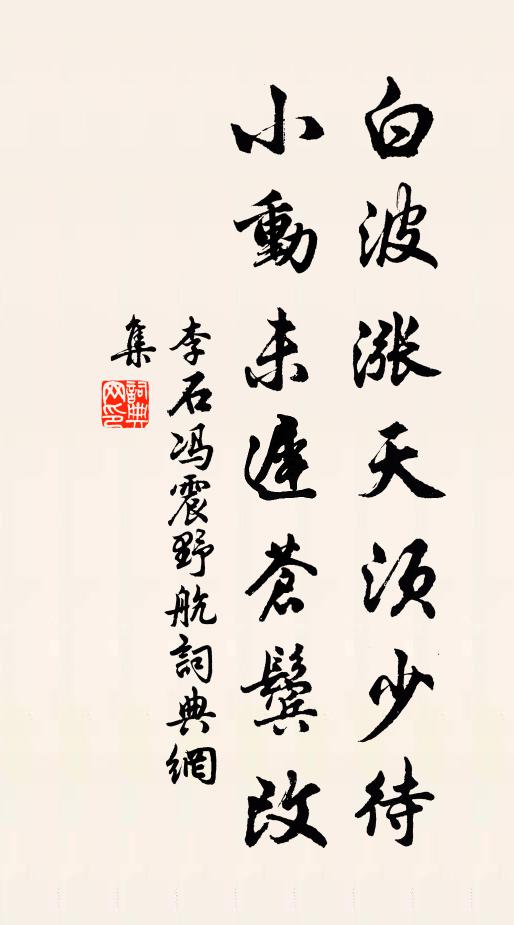 白波漲天須少待
小動未遲蒼鬢改
李石冯震野航詞典網
集
詞典
网印